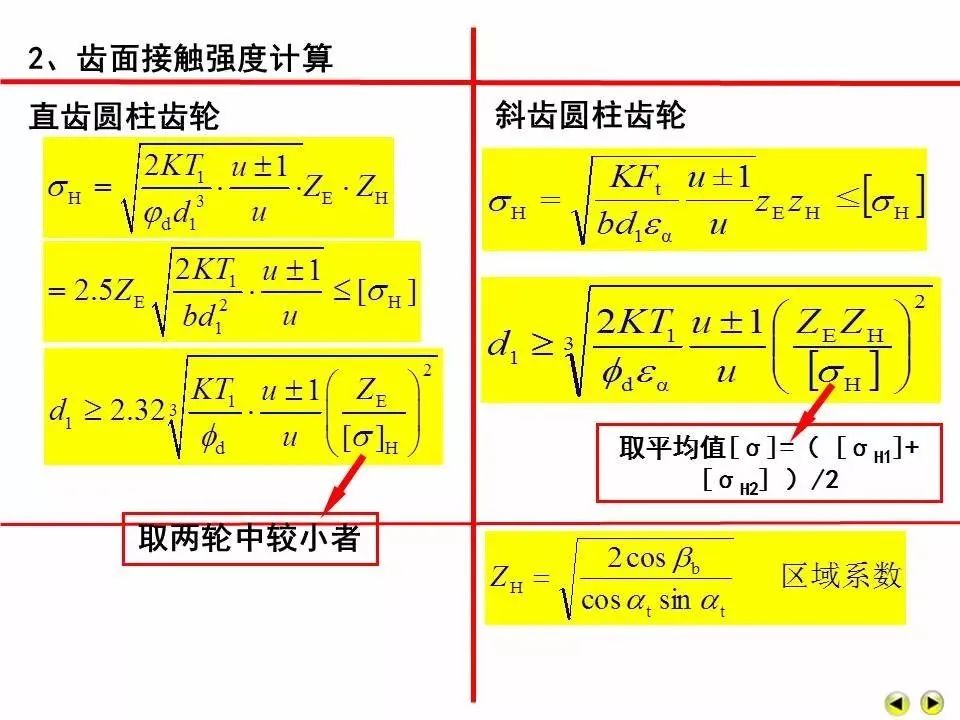 2、齿面接触强度计算
直齿圆柱齿轮
σ_H = √(2KT₁/(φ_d d₁³) · (u±1)/u) · Z_E · Z_H
= 2.5Z_E √(2KT₁/(bd₁²) · (u±1)/u) ≤ [σ_H]
d₁ ≥ 2.32 ∛(KT₁/ϕ_d · (u±1)/u (Z_E/[σ]_H)²)
取两轮中较小者
斜齿圆柱齿轮
σ_H = √(KF_t/(bd₁ε_α) (u±1)/u) z_E z_H ≤ [σ_H]
d₁ ≥ ∛(2KT₁/(ϕ_d ε_α) (u±1)/u (Z_E Z_H/[σ_H])²)
取平均值[σ]=([σ_H1]+
[σ_H2])/2
Z_H = √(2cos β_b/(cos α_t sin α_t)) 区域系数